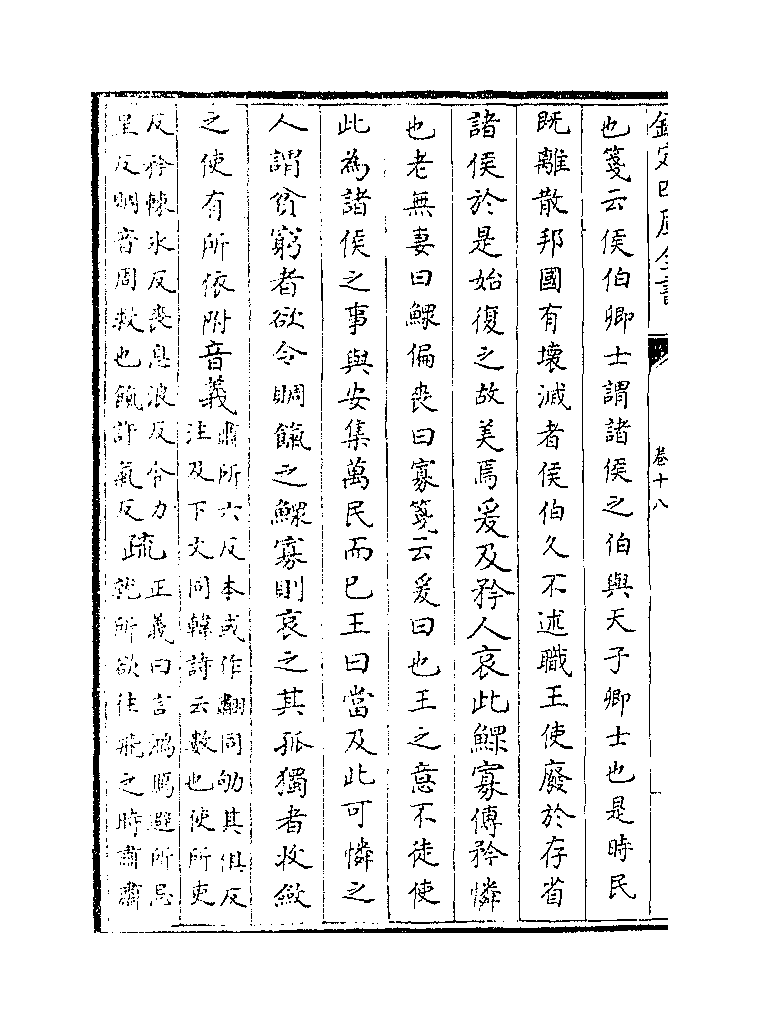 欽定四庫全書
卷十八
也箋云侯伯卿士謂諸侯之伯與天子卿士也是時民
既離散邦國有壞滅者侯伯久不述職王使廢於存省
諸侯於是始復之故美焉爰及矜人哀此鰥寡傳矜憐
也老無妻曰鰥偏喪曰寡箋云爰曰也王之意不徒使
此為諸侯之事與安集萬民而已王曰當及此可憐之
人謂貧窮者欲令賙餼之鰥寡則哀之其孤獨者收斂
之使有所依附音義肅所六反本或作翿同劬其俱反
注及下文同韓詩云數也使所吏
反矜棘冰反喪息浪反令力
呈反賙音周救也餼許氣反疏正義曰言鴻鴈避所忌
就所欲往飛之時肅肅